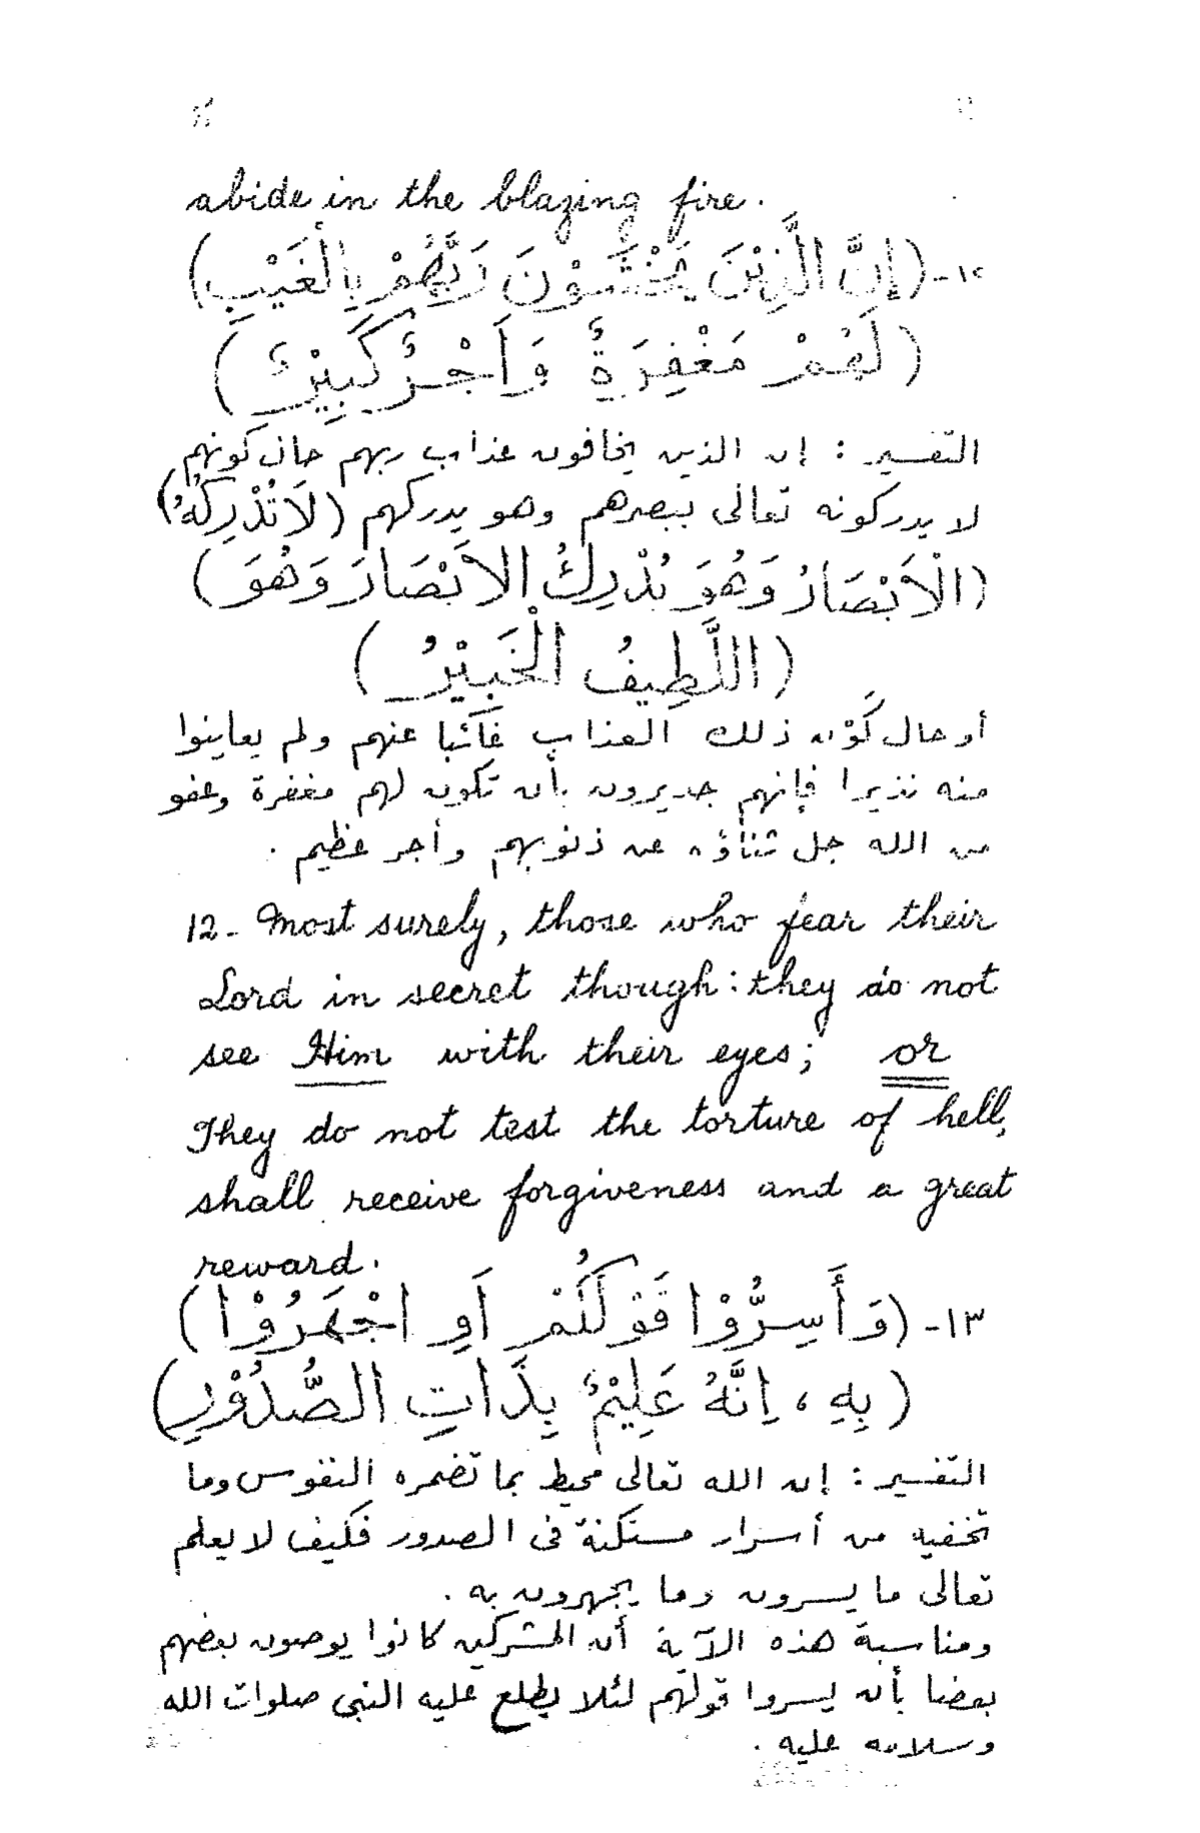 abide in the blazing fire.
١٢- (إِنَّ الَّذِيْنَ يَخْشَوْنَ رَبَّهُمْ بِالْغَيْبِ)
(لَهُمْ مَغْفِرَةٌ وَاَجْرٌ كَبِيْرٌ)
التفسير : إن الذين يخافون عذاب ربهم حال كونهم
لا يدركونه تعالى ببصرهم وهو يدركهم (لَا تُدْرِكُهُ)
(الْاَبْصَارُ وَهُوَ يُدْرِكُ الاَبْصَارَ وَهُوَ)
(اللَّطِيفُ الْخَبِيْرُ)
أو حال كَوْن ذلك العذاب غَائبا عنهم ولم يعاينوا
منه نذيرا فإنهم جديرون بأن تكون لهم مغفرة وعفو
من الله جل ثناؤه عن ذنوبهم وأجر عظيم .
12- Most surely, those who fear their
Lord in secret though: they do not
see Him with their eyes; or
They do not test the torture of hell,
shall receive forgiveness and a great
reward.
١٣- (وَأَسِرُّوْا قَوْلَكُمْ اَوِ اجْهَرُوْا)
(بِهِ ، اِنَّهُ عَلِيْمٌ بِذَاتِ الصُّدُوْرِ)
التفسير : إن الله تعالى محيط بما تضمره النفوس وما
تخفيه من أسرار مستكنة فى الصدور فكيف لا يعلم
تعالى ما يسرون وما يجهرون به .
ومناسبة هذه الآية أن المشركين كانوا يوصون بعضهم
بعضا بأن يسروا قولهم لئلا يطلع عليه النبى صلوات الله
وسلامه عليه .